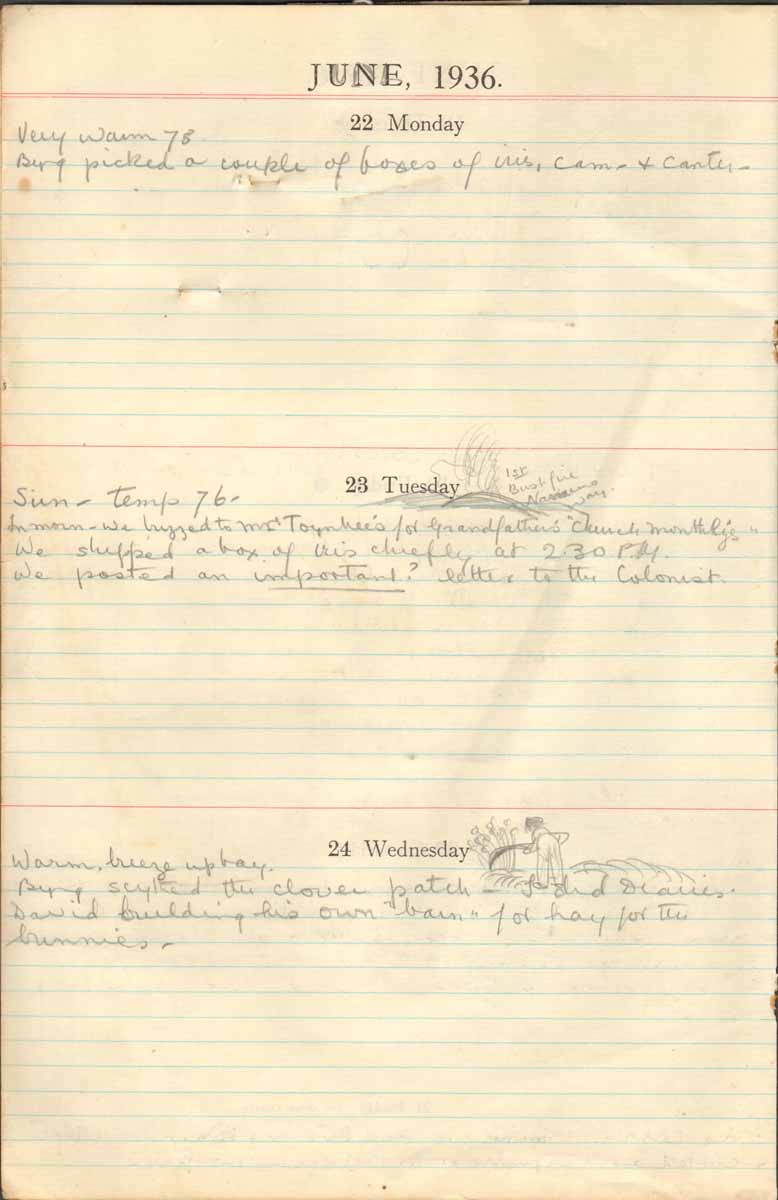 JUNE, 1936.
22 Monday
Very warm 78
Byng picked a couple of boxes of iris, cam- & canter-
23 Tuesday
1st
Bushfire
way.
Sun- temp 76-
In morn- we buzzed to Mrs Toynbee's for Grandfather's "Church Monthly's"
We shipped a box of iris chiefly at 2.30 P.M.
We posted an important? letter to the Colonist.
24 Wednesday
Warm, breeze up bay.
Byng scythed the clover patch - I did Dearies.
David building his own "barn" for hay for the
bunnies-